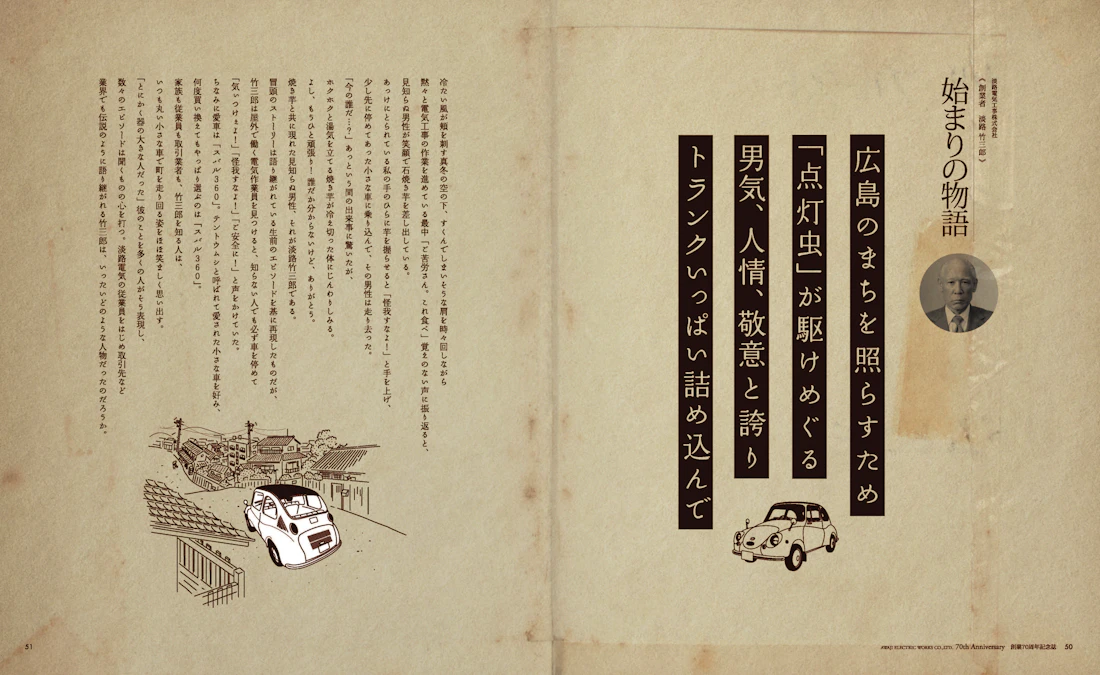 淡路電気工事株式会社
《創業者 淡路 竹三郎》
始まりの物語
広島のまちを照らすため
「点灯虫」が駆けめぐる
男気、人情、敬意と誇り
トランクいっぱい詰め込んで
AWAJI ELECTRIC WORKS CO.,LTD. 70th Anniversary 創業70周年記念誌 50
冷たい風が頬を刺す真冬の空の下、すくんでしまいそうな肩を時々回しながら
黙々と電気工事の作業を進めている最中「ご苦労さん。これ食べ」覚えのない声に振り返ると、
見知らぬ男性が笑顔で石焼き芋を差し出している。
あっけにとられている私の手のひらに芋を握らせると「怪我すなよ!」と手を上げ、
少し先に停めてあった小さな車に乗り込んで、その男性は走り去った。
「今の誰だ…?」あっという間の出来事に驚いたが、
ホクホクと湯気を立てる焼き芋が冷え切った体にじんわりしみる。
よし、もうひと頑張り!誰だか分からないけど、ありがとう。
焼き芋と共に現れた見知らぬ男性、それが淡路竹三郎である。
冒頭のストーリーは語り継がれている生前のエピソードを基に再現したものだが、
竹三郎は屋外で働く電気作業員を見つけると、知らない人でも必ず車を停めて
「気いつけぇよ!」「怪我すなよ!」「ご安全に!」と声をかけていた。
ちなみに愛車は「スバル360」。テントウムシと呼ばれて愛された小さな車を好み、
何度買い換えてもやっぱり選ぶのは「スバル360」。
家族も従業員も取引業者も、竹三郎を知る人は、
いつも丸い小さな車で町を走り回る姿をほほ笑ましく思い出す。
「とにかく器の大きな人だった」彼のことを多くの人がそう表現し、
数々のエピソードは聞くものの心を打つ。淡路電気の従業員をはじめ取引先など
業界でも伝説のように語り継がれる竹三郎は、いったいどのような人物だったのだろうか。
51